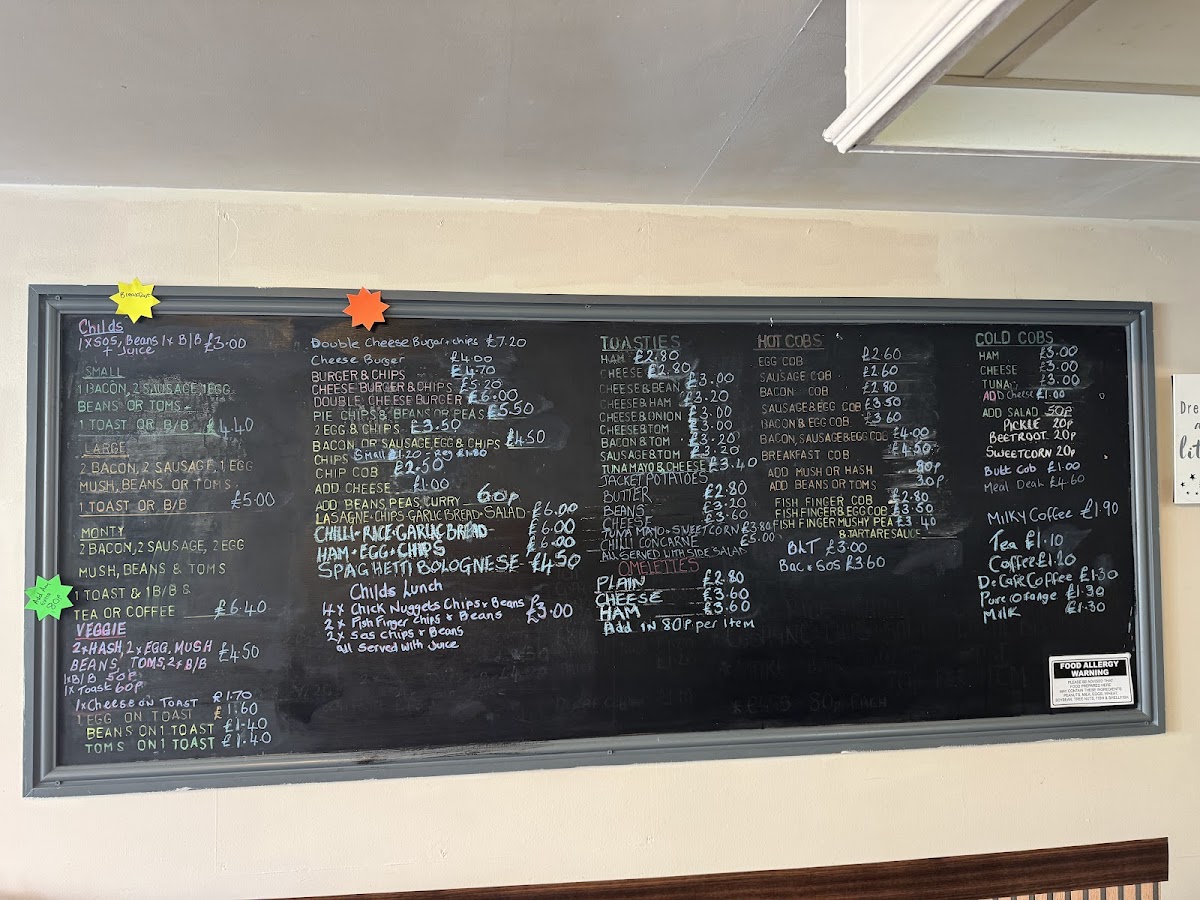 Breakfast
Childs
1 x Sos, Beans 1 x B/B £3.00
+ Juice
SMALL
1 BACON, 2 SAUSAGE, 1 EGG
BEANS OR TOMS
1 TOAST OR B/B £4.40
LARGE
2 BACON, 2 SAUSAGE, 1 EGG
MUSH, BEANS OR TOMS
1 TOAST OR B/B £5.00
MONTY
2 BACON, 2 SAUSAGE, 2 EGG
MUSH, BEANS & TOMS
1 TOAST & 1 B/B &
TEA OR COFFEE £6.40
80p
VEGGIE
2 x HASH, 2 x EGG, MUSH
BEANS, TOMS, 2 x B/B £4.50
1 x B/B 50p
1 x Toast 60p
1 x Cheese on TOAST £1.70
1 EGG ON TOAST £1.60
BEANS ON 1 TOAST £1.40
TOMS ON 1 TOAST £1.40
Double Cheese Burger + chips £7.20
Cheese Burger £4.00
BURGER & CHIPS £4.70
CHEESE BURGER & CHIPS £5.20
DOUBLE CHEESE BURGER £6.00
PIE CHIPS & BEANS OR PEAS £5.50
2 EGG & CHIPS £3.50
BACON OR SAUSAGE EGG & CHIPS £4.50
CHIPS Small £1.20 - Reg £1.80
CHIP COB £2.50
ADD CHEESE £1.00
ADD BEANS, PEAS, CURRY 60p
LASAGNE-CHIPS-GARLIC BREAD-SALAD £6.00
CHILLI-RICE-GARLIC BREAD £6.00
HAM-EGG-CHIPS £6.00
SPAGHETTI BOLOGNESE - £4.50
Childs Lunch
4 x Chick Nuggets Chips x Beans
2 x Fish Finger Chips x Beans £3.00
2 x Sos Chips x Beans
all Served With Juice
TOASTIES
HAM £2.80
CHEESE £2.80
CHEESE & BEAN £3.00
CHEESE & HAM £3.20
CHEESE & ONION £3.00
CHEESE & TOM £3.00
BACON & TOM £3.20
SAUSAGE & TOM £3.20
TUNA MAYO & CHEESE £3.40
JACKET POTATOES
BUTTER £2.80
BEANS £3.20
CHEESE £3.60
TUNA MAYO + SWEETCORN £3.80
CHILLI CONCARNE £5.00
ALL SERVED WITH SIDE SALAD
OMELETTES
PLAIN £2.80
CHEESE £3.60
HAM £3.60
Add IN 80p per Item
HOT COBS
EGG COB £2.60
SAUSAGE COB £2.60
BACON COB £2.80
SAUSAGE & EGG COB £3.50
BACON & EGG COB £3.60
BACON, SAUSAGE & EGG COB £4.00
BREAKFAST COB £4.50
ADD MUSH OR HASH 80p
ADD BEANS OR TOMS 30p
FISH FINGER COB £2.80
FISH FINGER & EGG COB £3.50
FISH FINGER MUSHY PEA £3.40
& TARTARE SAUCE
BLT £3.00
Bac & Sos £3.60
COLD COBS
HAM £3.00
CHEESE £3.00
TUNA £3.00
ADD Cheese £1.00
ADD SALAD 50p
PICKLE 20p
BEETROOT 20p
SWEETCORN 20p
Butt Cob £1.00
Meal Deal £4.60
MILKY COFFEE £1.90
Tea £1.10
Coffee £1.20
De Cafe Coffee £1.30
Pure Orange £1.30
Milk £1.30
FOOD ALLERGY
WARNING
PLEASE BE ADVISED THAT
FOOD PREPARED HERE
MAY CONTAIN THESE INGREDIENTS:
PEANUTS, MILK, EGGS, WHEAT,
SOYBEAN, TREE NUTS, FISH & SHELLFISH
Dre
a
lit